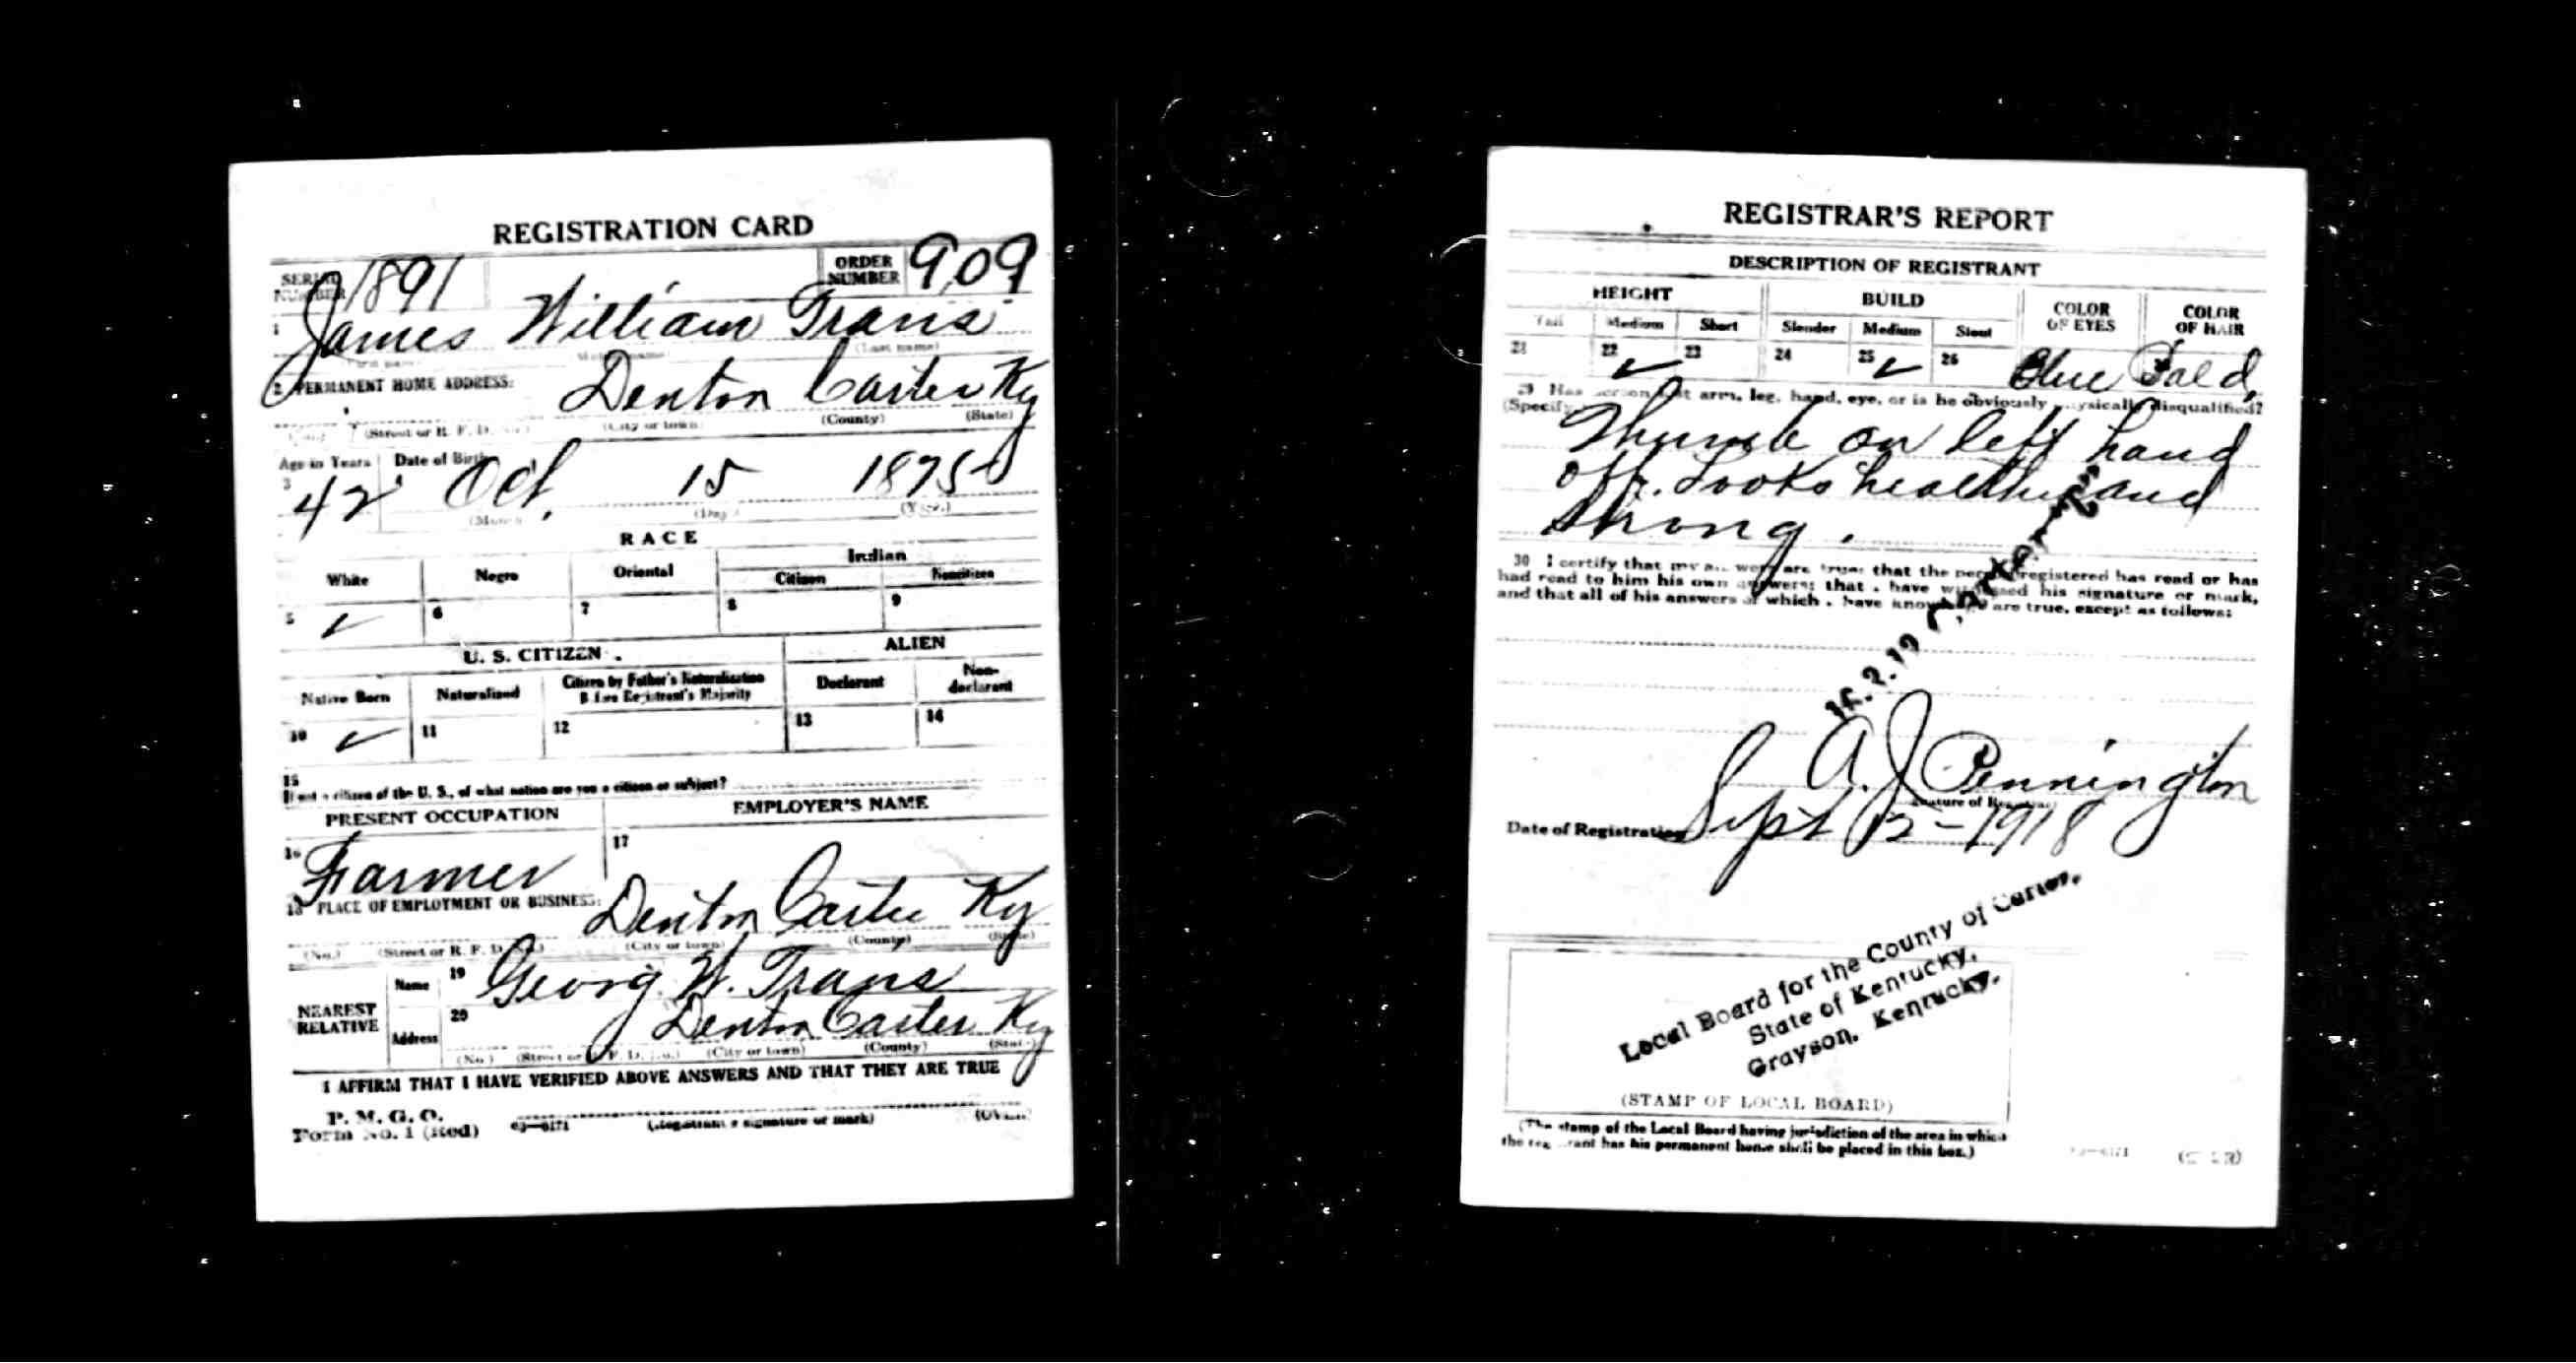 REGISTRATION CARD
SERIAL NUMBER 1891 ORDER NUMBER 909
1 James William Trans
(Last name)
2 PERMANENT HOME ADDRESS: Denton Carter Ky
(Street or R. F. D. No.) (City or town) (County) (State)
Age in Years Date of Birth
3 42 4 Oct. 15 1875
(Month) (Day) (Year)
RACE
White Negro Oriental Indian
Citizen Noncitizen
5 ✓ 6 7 8 9
U. S. CITIZEN ALIEN
Native Born Naturalized Citizen by Father's Naturalization Before Registrant's Majority Declarant Non-declarant
10 ✓ 11 12 13 14
15
If not a citizen of the U. S., of what nation are you a citizen or subject?
PRESENT OCCUPATION EMPLOYER'S NAME
16 Farmer 17
18 PLACE OF EMPLOYMENT OR BUSINESS: Denton Carter Ky
(No.) (Street or R. F. D. No.) (City or town) (County) (State)
NEAREST RELATIVE
Name 19 Georg W. Trans
Address 20 Denton Carter Ky
(No.) (Street or R. F. D. No.) (City or town) (County) (State)
I AFFIRM THAT I HAVE VERIFIED ABOVE ANSWERS AND THAT THEY ARE TRUE
P. M. G. O.
Form No. 1 (Red) 03—6171 (Registrant's signature or mark) (OVER)
REGISTRAR'S REPORT
DESCRIPTION OF REGISTRANT
HEIGHT BUILD COLOR OF EYES COLOR OF HAIR
Tall Medium Short Slender Medium Stout
21 22 ✓ 23 24 25 ✓ 26 Blue Bald,
29 Has person lost arm, leg, hand, eye, or is he obviously physically disqualified?
(Specify.)
Thumb on left hand
off. Looks healthy and
strong.
30 I certify that my answers are true; that the person registered has read or has
had read to him his own answers; that I have witnessed his signature or mark,
and that all of his answers of which I have knowledge are true, except as follows:
A. J. Pennington
(Signature of Registrar)
Date of Registration Sept 12-1918
Local Board for the County of Carter,
State of Kentucky,
Grayson, Kentucky.
(STAMP OF LOCAL BOARD)
(The stamp of the Local Board having jurisdiction of the area in which
the registrant has his permanent home shall be placed in this box.)
03—6171 (OVER)